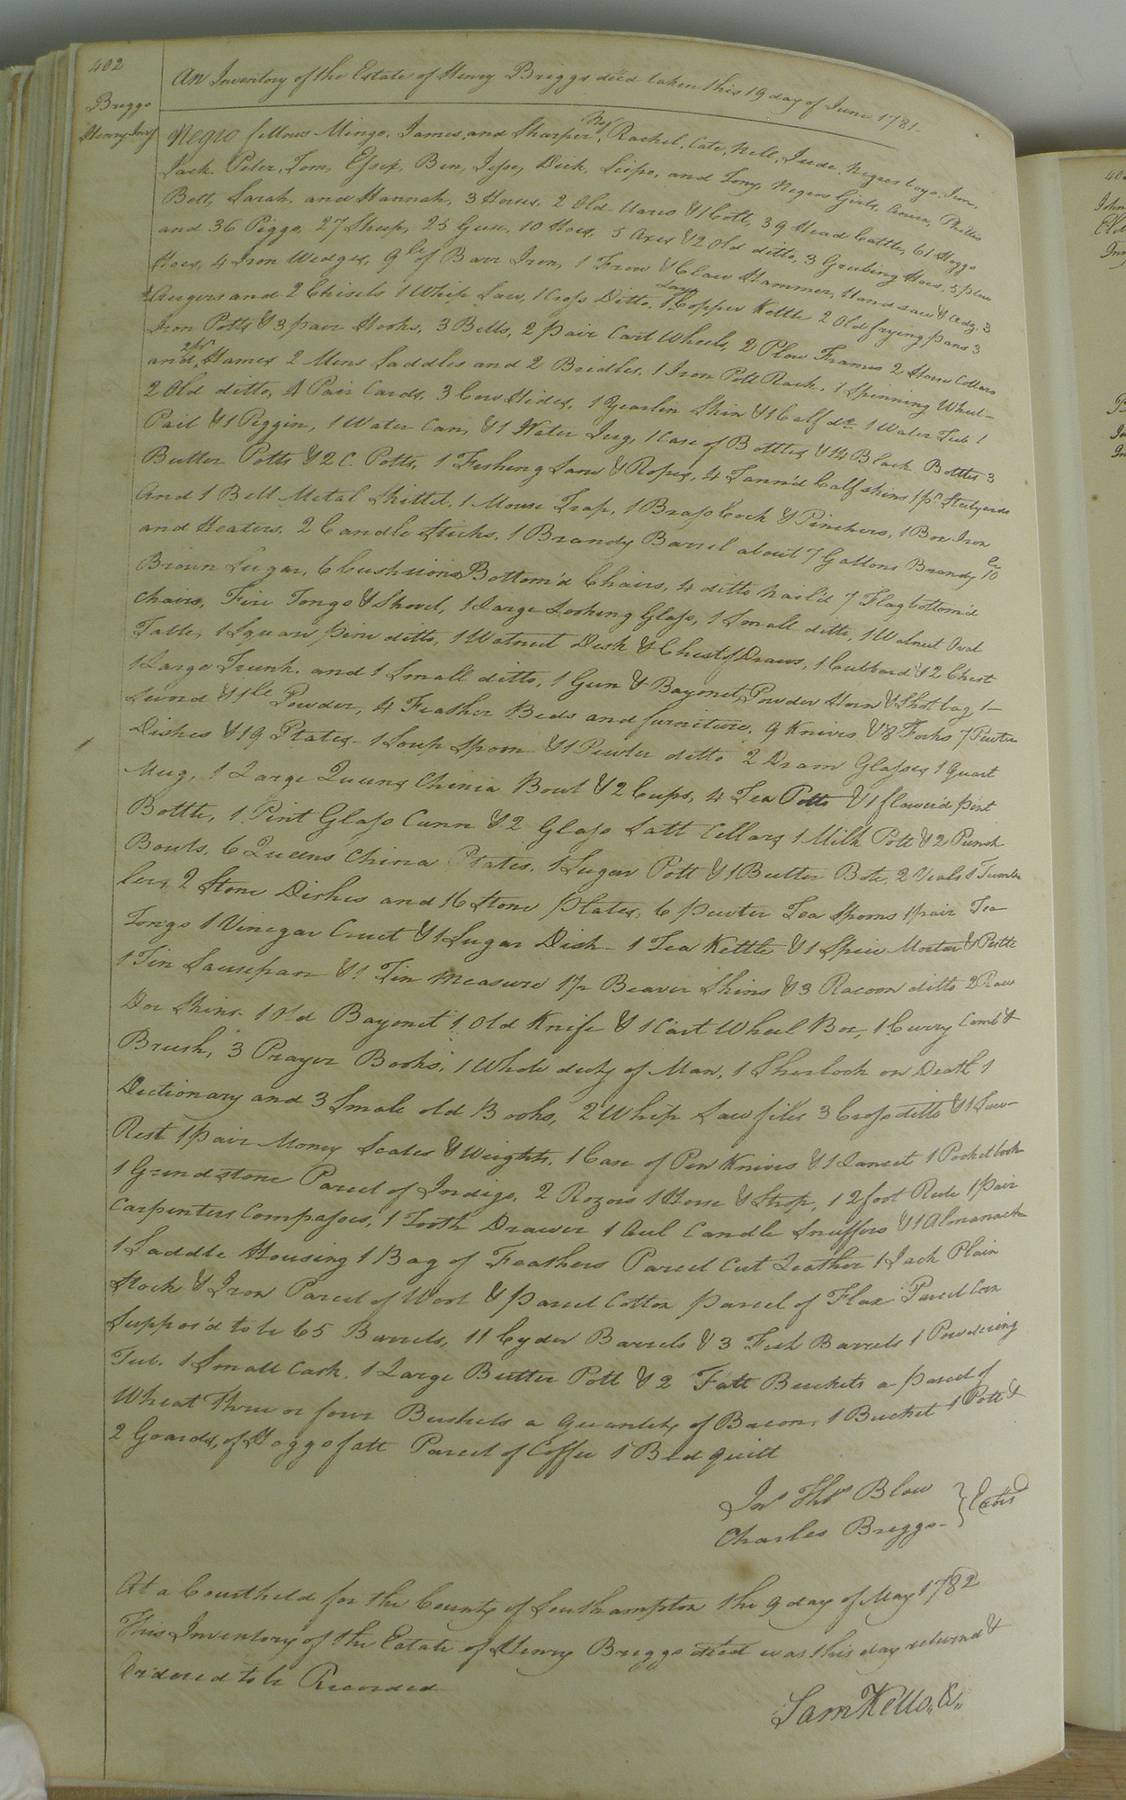 402
Briggs
Henry Invy
An Inventory of the Estate of Henry Briggs deed taken this 19 day of June 1781.
Negro fellows Mingo, James, and Sharper, Rachel, Cate, Nell, Jude, Negroe boys
Jack, Peter, Tom, Essex, Ben, Jesse, Dick, Scipo, and Tony, Negroe Girls, Phillis
Bett, Sarah, and Hannah, 3 Horses, 2 Old Mares & 1 Colt, 39 Head Cattle, 61 Hoggs
and 36 Piggs, 27 Sheep, 25 Geese, 10 Hoes, 5 Axes & 2 Old ditto, 3 Grubing Hoes, 5 plow
Hoes, 4 Iron Wedges, 9 lb of Barr Iron, 1 Frow & Claw Hammer, Hand saw & Adz, 3
Augers and 2 Chisels 1 Whip Saw, 1 Cross Ditto, 1 Large Copper Kettle 2 Old frying pans 3
Iron Potts & 3 pair Hooks, 3 Bells, 2 pair Cart Wheels, 2 Plow Frames 2 Horse Collars
and Hames 2 Mens Saddles and 2 Bridles, 1 Iron Pott Rack, 1 Spinning Wheel
2 Old ditto, 4 Pair Cards, 3 Cow Hides, 1 Yearlin Skin & 1 Calf do 1 Water Tub 1
Pail & 1 Piggin, 1 Water Can, & 1 Water Jug, 1 Case of Bottles & 14 Black Bottles 3
Butter Potts & 2 C. Potts, 1 Fishing Sane & Ropes, 4 Tann'd Calf skins 1 pr Steelyards
And 1 Bell Metal Skillet, 1 Mouse Trap, 1 Brass Cock & Pinchers, 1 Box Iron
and Heaters, 2 Candle Sticks, 1 Brandy Barrel about 7 Gallons Brandy 10 lb
Brown Sugar, 6 Cushions Bottom'd Chairs, 4 ditto nail'd 7 Flag bottom'd
Chairs, Fire Tongs & Shovel, 1 Large Looking Glass, 1 Small ditto, 1 Walnut Oval
Table, 1 Square pine ditto, 1 Walnut Desk & Chest of Draws, 1 Cubbard & 2 Chest
1 Large Trunk, and 1 Small ditto, 1 Gun & Bayonet, Powder Horn & Shot bag 1
& 1 lb Powder, 4 Feather Beds and furniture, 9 Knives & 8 Forks 7 Pewter
Dishes & 19 Plates 1 Soup Spoon & 1 Pewter ditto 2 Dram Glasses 1 Quart
Mug, 1 Large Queens Chinia Bowl & 2 Cups, 4 Tea Potts & 1 flower'd pint
Bottle, 1 Pint Glass Cann & 2 Glass Salt Cellars 1 Milk Pott & 2 Punch
Bowls, 6 Queens China Plates, 1 Sugar Pott & 1 Butter Bote, 2 Vials 1 Tumb
ler, 2 Stone Dishes and 16 Stone Plates, 6 pewter Tea Spoons 1 pair Tea
Tongs 1 Vinegar Cruet & 1 Sugar Dish 1 Tea Kettle & 1 Spice Mortar & Pestle
1 Tin Sausepan & 1 Tin measure 17 Beaver Skins & 3 Racoon ditto 2 Raw
Doe Skins 1 Old Bayonet 1 Old Knife & 1 Cart Wheel Box, 1 Curry Comb &
Brush, 3 Prayer Books, 1 Whole duty of Man, 1 Sherlock on Death 1
Dictionary and 3 Smale old Books, 2 Whip Saw files 3 Cross ditto & 1 Saw
Rest 1 pair Money Scales & Weights, 1 Case of Pen Knives & 1 Lancet 1 Pocketbook
1 Grindstone Parcel of Indigo, 2 Rozors 1 Hone & Strop, 1 2 foot Rule 1 pair
Carpenters Compasses, 1 Tooth Drawer 1 Aul Candle Snuffers & 1 Almanack
1 Saddle Housing 1 Bag of Feathers Parcel Cut Leather 1 Jack Plain
Stock & Iron Parcel of Wool & parcel Cotton parcel of Flax Parcel Corn
Suppos'd to be 65 Barrels, 11 Cyder Barrels & 3 Fish Barrels 1 Powdering
Tub, 1 Small Cask, 1 Large Butter Pott & 2 Fatt Buckets a parcel of
Wheat three or four Bushels a Quantity of Bacon, 1 Bucket 1 Pott &
2 Goards, of Hoggs fatt Parcel of Coffee 1 Bed quilt
Jno Thos Blow
Charles Briggs } Exors
At a Court held for the County of Southampton the 9 day of May 1782
This Inventory of the Estate of Henry Briggs deed was this day returned &
Ordered to be Recorded
Sam Kello, C.